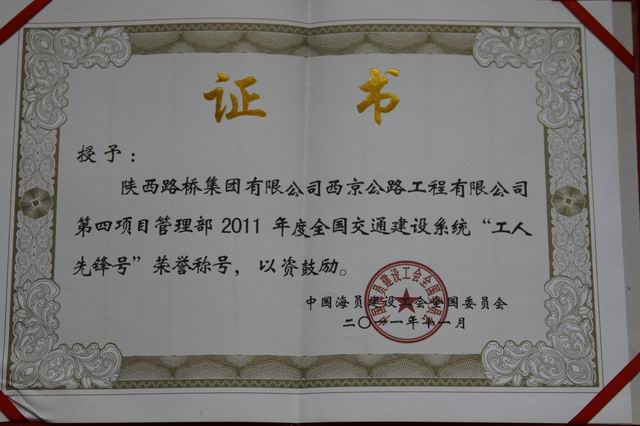 证 书
授予：
陕西路桥集团有限公司西京公路工程有限公司
第四项目管理部 2011 年度全国交通建设系统“工人
先锋号”荣誉称号，以资鼓励。
中国海员建设工会全国委员会
二〇一一年十一月